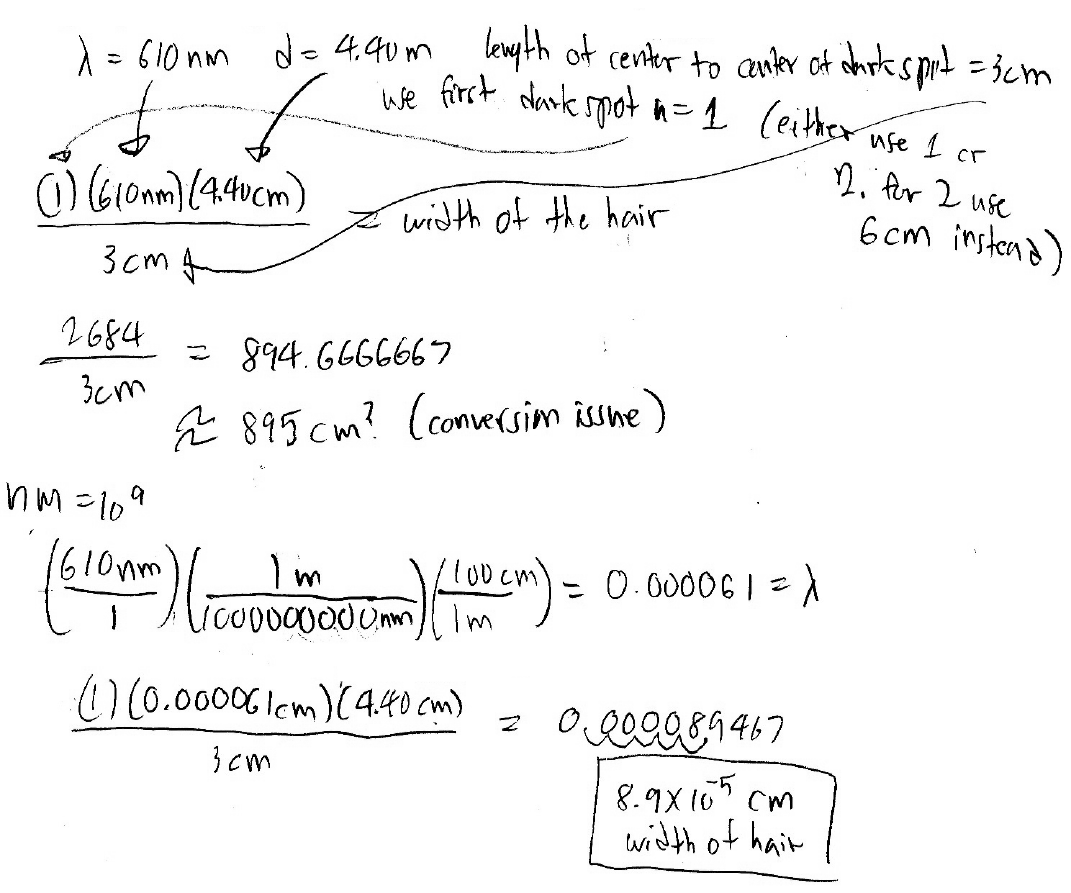 λ = 610nm d = 4.40m length of center to center of dark spot = 3cm
use first dark spot n = 1 (either use 1 or
2. for 2 use
6cm instead)
(1)(610nm)(4.40cm) / 3cm = width of the hair
2684 / 3cm = 894.6666667
≈ 895cm? (conversion issue)
nm = 10⁹
(610nm / 1)(1m / 1000000000nm)(100cm / 1m) = 0.000061 = λ
(1)(0.000061cm)(4.40cm) / 3cm = 0.000089467
8.9×10⁻⁵ cm
width of hair